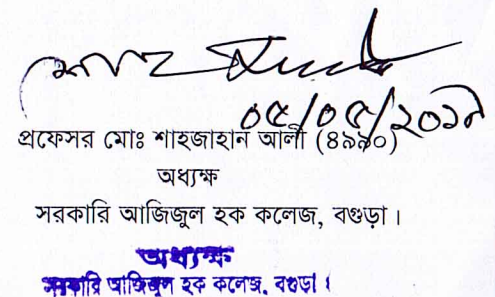 ০৫/০৫/২০১৯
প্রফেসর মোঃ শাহজাহান আলী (৪৯৯০)
অধ্যক্ষ
সরকারি আজিজুল হক কলেজ, বগুড়া।
অধ্যক্ষ
সরকারি আজিজুল হক কলেজ, বগুড়া।